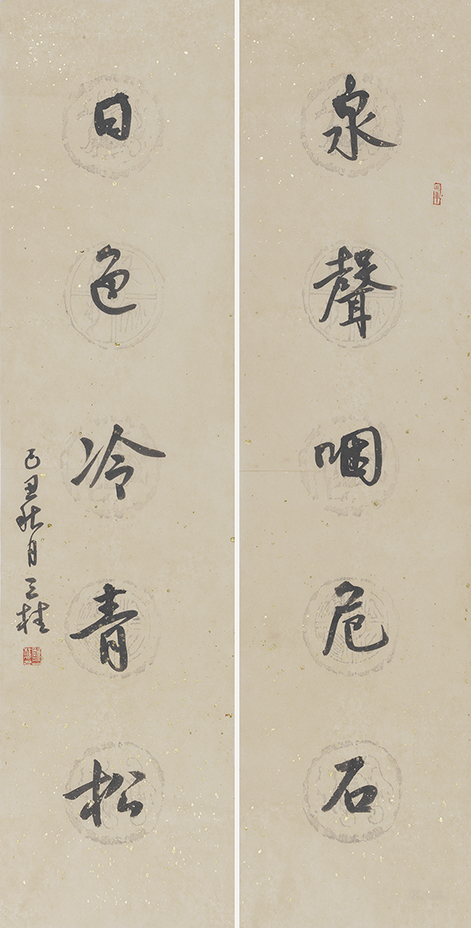 泉聲咽危石
日色冷青松
己丑秋月三桂